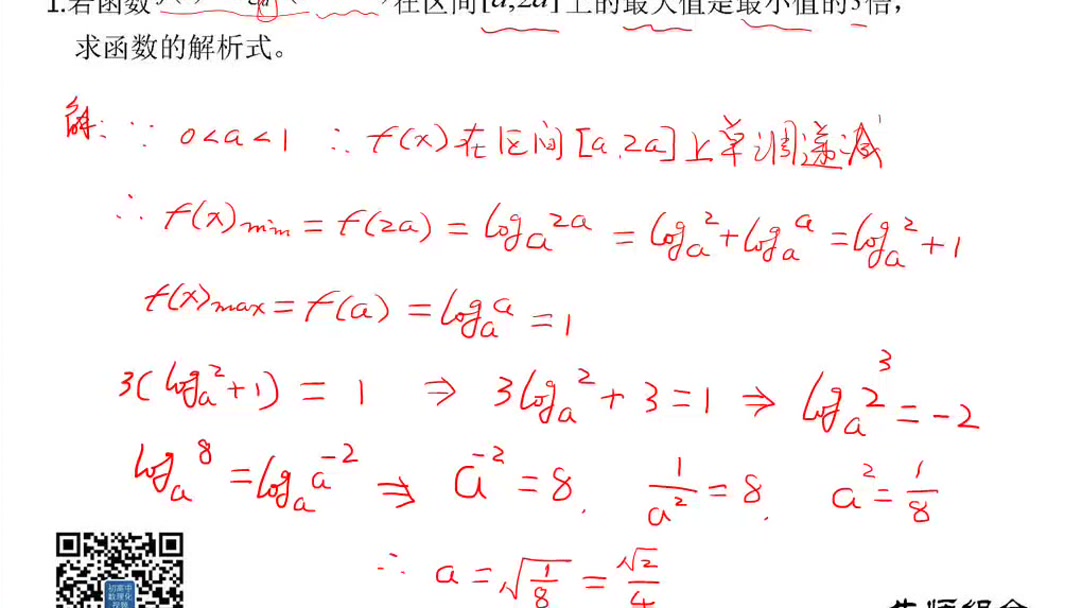 1.若函数 在区间[a,2a]上的最大值是最小值的3倍，
求函数的解析式。
解：∵ 0<a<1 ∴ f(x)在区间[a,2a]上单调递减
∴ f(x)min = f(2a) = logₐ2a = logₐ2 + logₐa = logₐ2 + 1
f(x)max = f(a) = logₐa = 1
3(logₐ2 + 1) = 1 ⇒ 3logₐ2 + 3 = 1 ⇒ logₐ2³ = -2
logₐ8 = logₐa⁻² ⇒ a⁻² = 8, 1/a² = 8, a² = 1/8
∴ a = √(1/8) = √2/4
初高中
数理化
视频